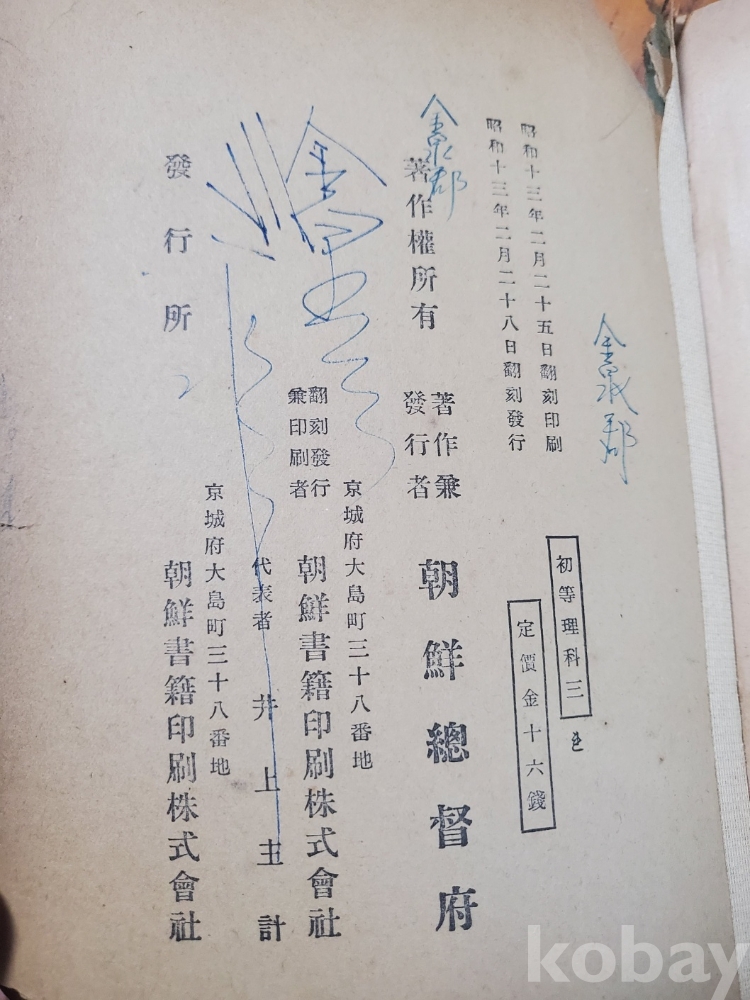 金泉郡
昭和十三年二月二十五日翻刻印刷
昭和十三年二月二十八日翻刻發行
初等理科三
定價金十六錢
金泉郡
著作權所有
著作兼
發行者
朝鮮總督府
京城府大島町三十八番地
翻刻發行
兼印刷者
朝鮮書籍印刷株式會社
代表者 井上主計
京城府大島町三十八番地
發行所
朝鮮書籍印刷株式會社
kobay